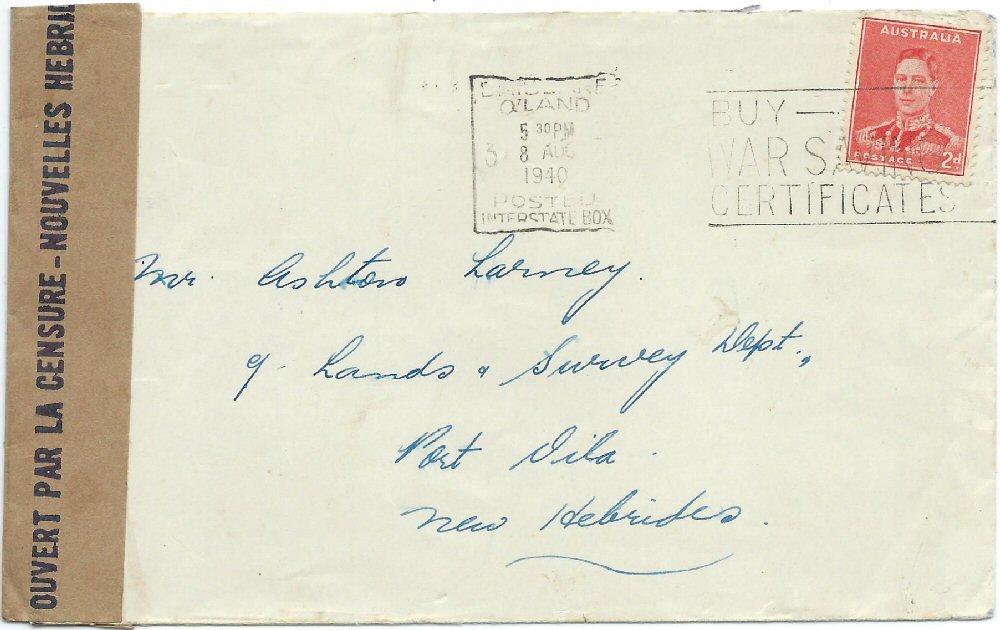 OUVERT PAR LA CENSURE - NOUVELLES HEBRID
BRISBANE
Q'LAND
5 30 PM
8 AUG
1940
POSTED
INTERSTATE BOX
BUY —
WAR SAVING
CERTIFICATES
AUSTRALIA
POSTAGE 2d.
Mr. Ashton Larney.
c/- Lands & Survey Dept.,
Port Vila.
New Hebrides.